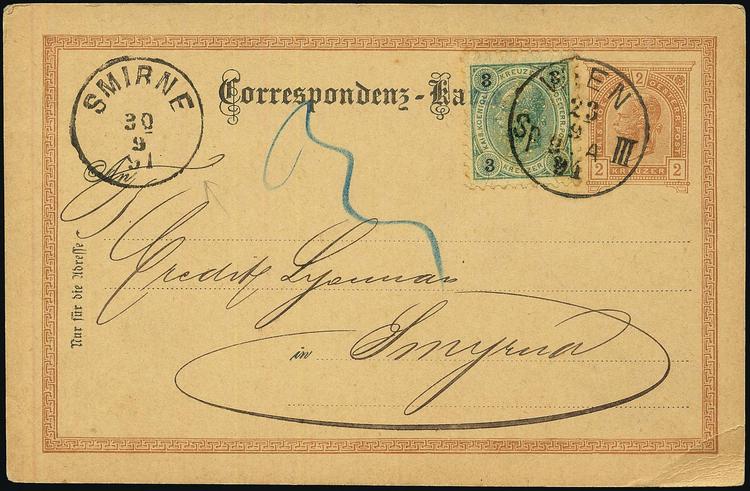 SMIRNE
30
9
91
Correspondenz-Ka
3 3
KREUZER
KAIS. KOENIGL.
3 3
KREUZER
WIEN
23
9
91
III
2
2 2
KREUZER
An
Nur für die Adresse
Credit Lyonnais
in Smyrna